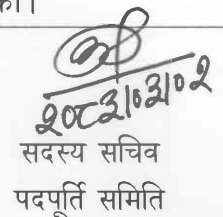 २०८३।०३।०२
सदस्य सचिव
पदपूर्ति समिति